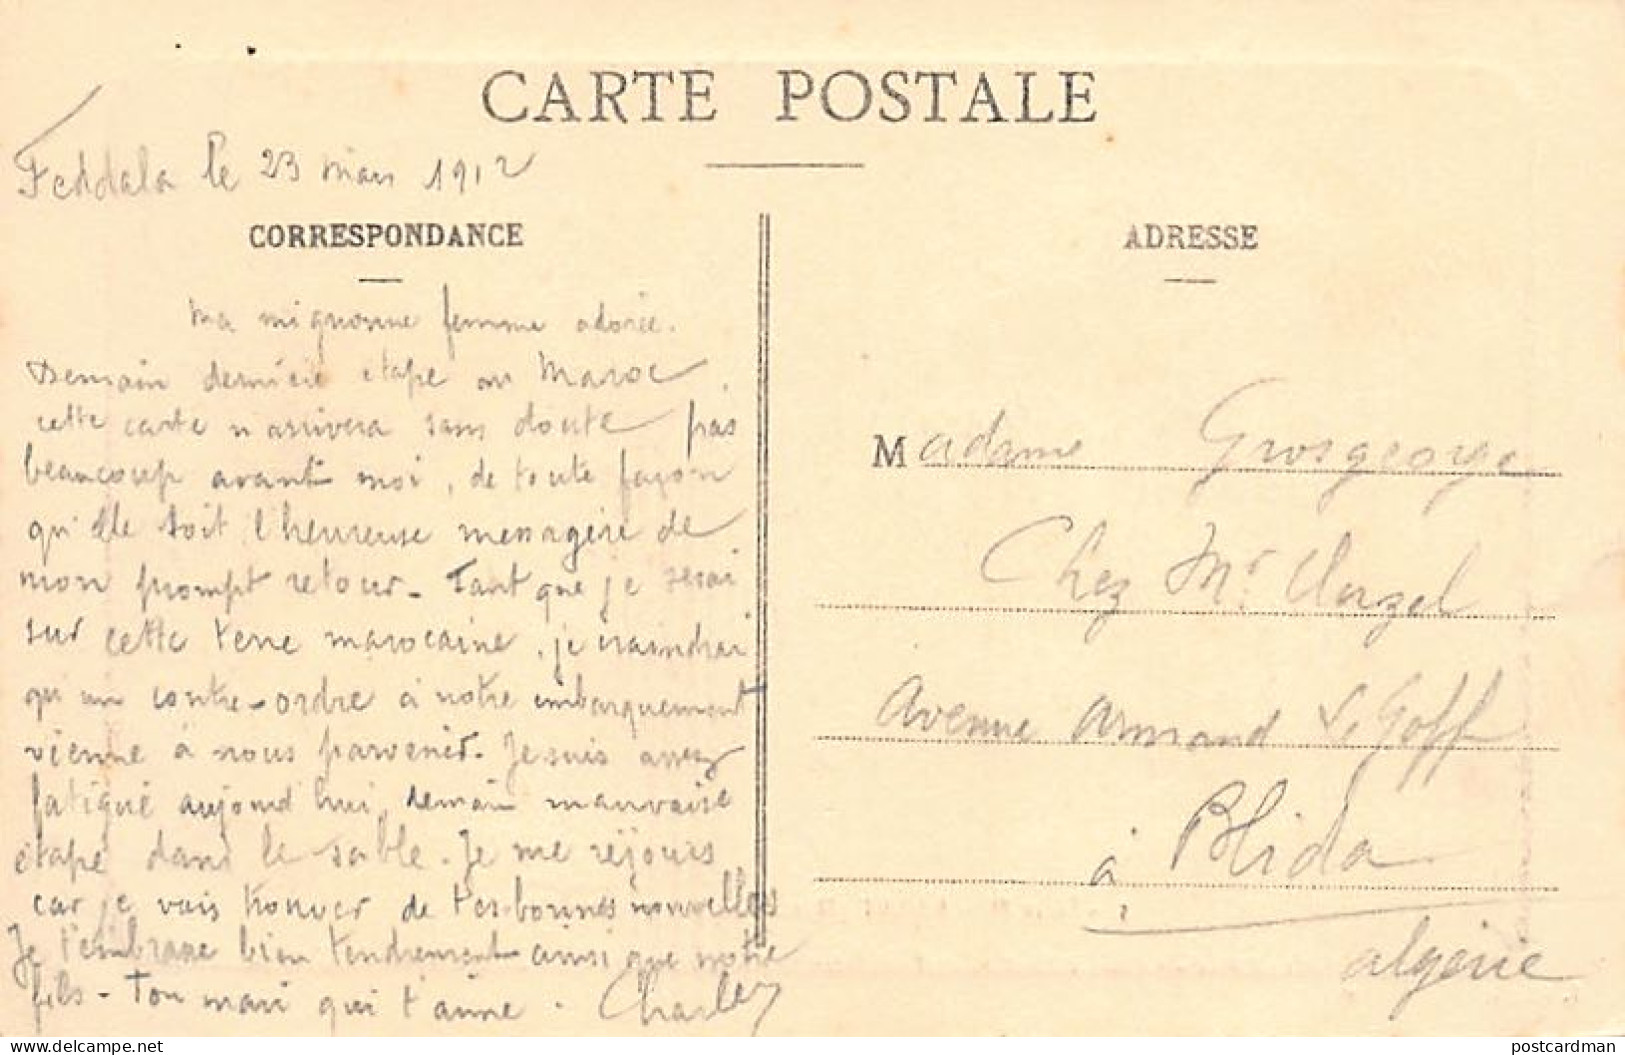 CARTE POSTALE
Feddala le 23 mars 1912
CORRESPONDANCE
Ma mignonne femme adorée.
Demain dernière étape au Maroc.
cette carte n'arrivera sans doute pas
beaucoup avant moi, de toute façon
qu'elle soit l'heureuse messagère de
mon prompt retour - Tant que je serai
sur cette terre marocaine, je craindrai
qu'un contre-ordre à notre embarquement
vienne à nous parvenir. Je suis assez
fatigué aujourd'hui, demain mauvaise
étape dans le sable. Je me réjouis
car je vais trouver de tes bonnes nouvelles
Je t'embrasse bien tendrement ainsi que notre
fils - Ton mari qui t'aime. Charles
ADRESSE
Madame Grosgeorge
Chez Mr
Avenue Armand Le Goff
à Blida
Algérie
postcards-paradise.com
postcardman